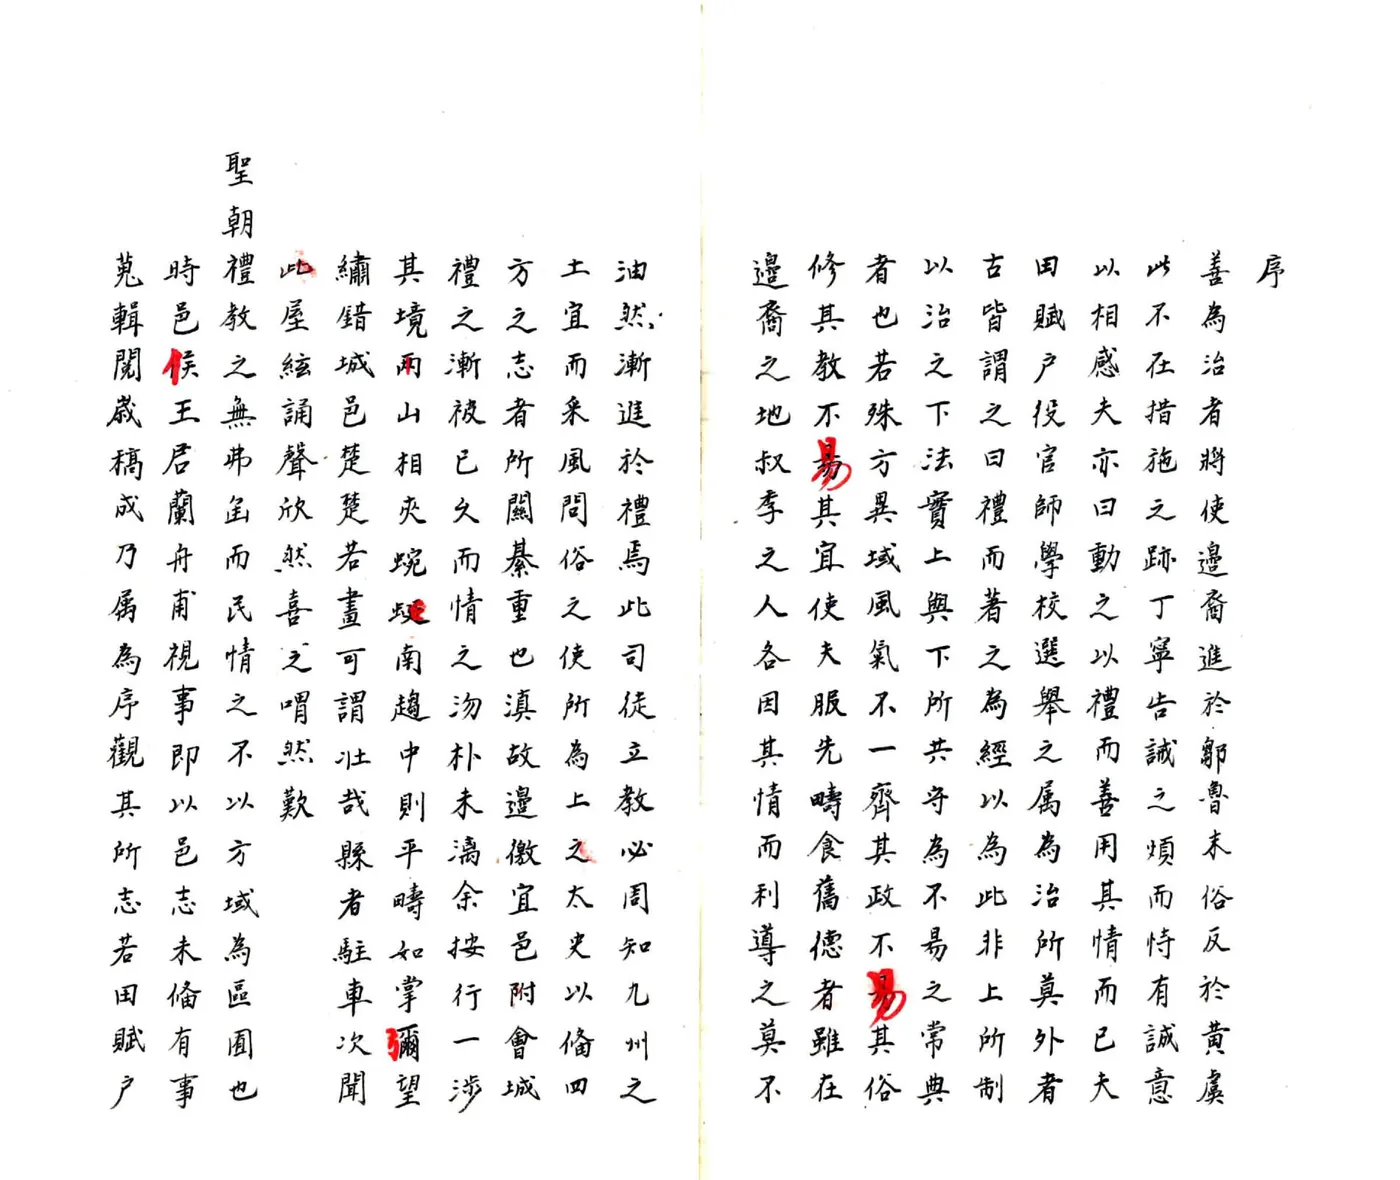 序
善為治者將使邊裔進於鄒魯末俗反於黃虞
此不在措施之跡丁寧告誡之煩而恃有誠意
以相感夫亦曰動之以禮而善用其情而已夫
田賦户役官師學校選舉之属為治所莫外者
古皆謂之曰禮而著之為經以為此非上所制
以治之下法實上與下所共守為不易之常典
者也若殊方異域風氣不一齊其政不易其俗
修其教不易其宜使夫服先疇食舊德者雖在
邊裔之地叔季之人各因其情而利導之莫不
油然漸進於禮焉此司徒立教必周知九州之
土宜而采風問俗之使所為上之太史以俻四
方之志者所關綦重也滇故邊徼宜邑附會城
禮之漸被已久而情之沕朴未漓余按行一涉
其境兩山相夾蜿蜒南趨中則平疇如掌彌望
繡錯城邑楚楚若畫可謂壮哉縣者駐車次聞
此屋絃誦聲欣然喜之喟然歎
聖朝禮教之無弗㐫而民情之不以方域為區囿也
時邑侯王君蘭舟甫視事即以邑志未俻有事
蒐輯閱歲稿成乃属為序觀其所志若田賦户